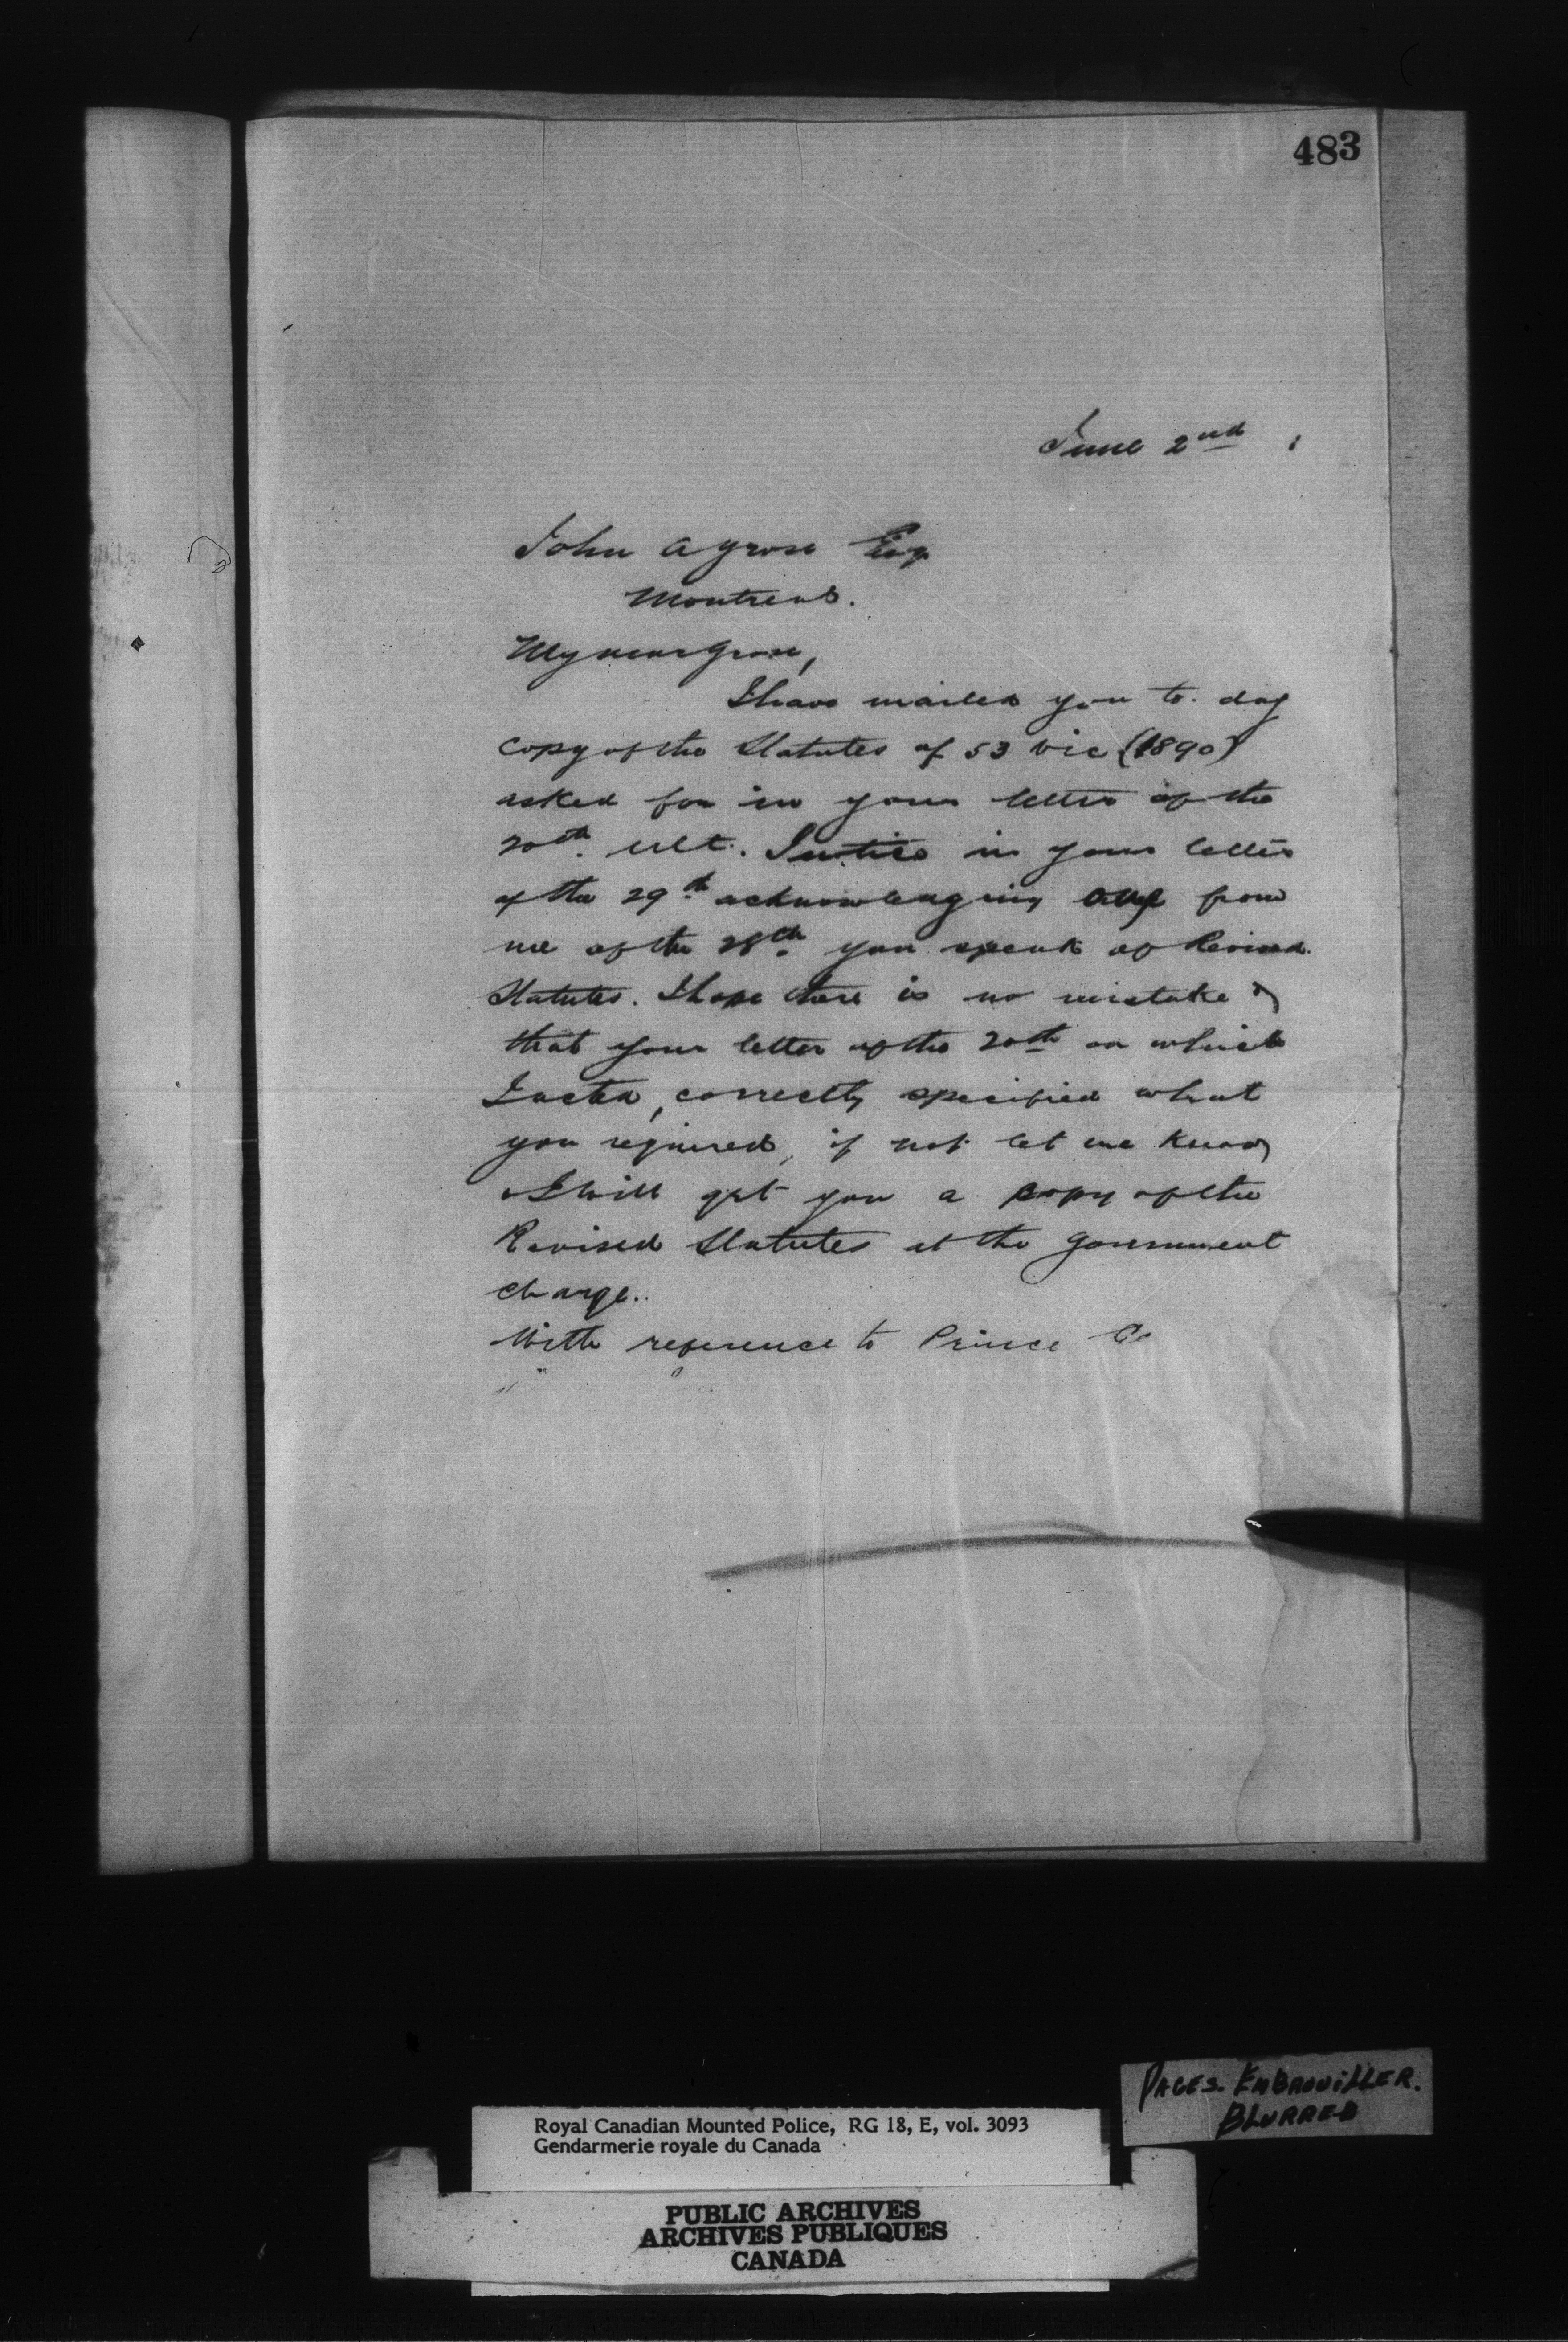 483
June 2nd
John A Grose Esq
Montreal.
My dear Grose,
I have mailed you to-day
copy of the Statutes of 53 Vic (1890)
asked for in your letter of the
20th ult. I notice in your letter
of the 29th acknowledging from
me of the 28th you speak of Revised
Statutes. I hope there is no mistake &
that your letter of the 20th on which
I acted, correctly specified what
you required, if not let me know
& I will get you a copy of the
Revised Statutes at the Government
charge.
With reference to Prince
PAGES. EMBROUILLER.
BLURRED
Royal Canadian Mounted Police, RG 18, E, vol. 3093
Gendarmerie royale du Canada
PUBLIC ARCHIVES
ARCHIVES PUBLIQUES
CANADA